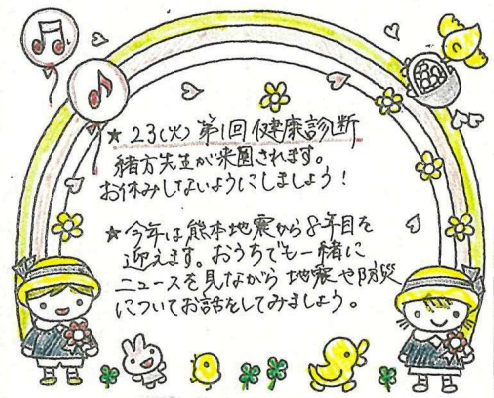 ★ 23(火) 第1回 健康診断
緒方先生が来園されます。
お休みしないようにしましょう!
★ 今年は熊本地震から8年目を
迎えます。おうちでも一緒に
ニュースを見ながら 地震や防災
についてお話をしてみましょう。